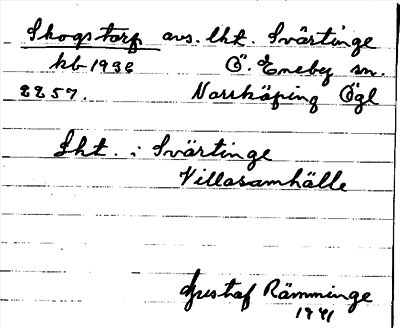 Skogstorp avs. lht. Svärtinge
kb 1936 Ö. Eneby sn.
2257. Norrköping Ögl
Lht. i Svärtinge
Villasamhälle
Gustaf Rämminge
1941